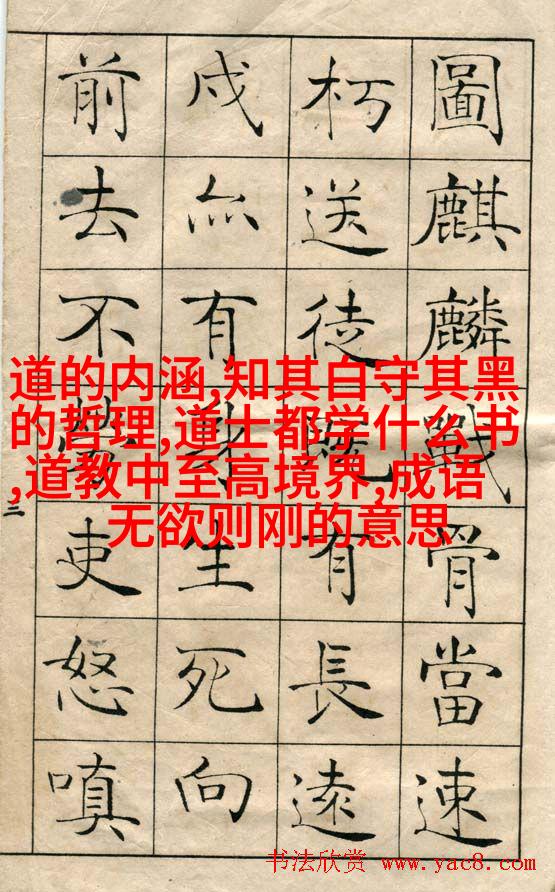 圖麒麟戰骨當速
朽送徒既有長遠
戍亦有身生死向
前去不勞吏怒嗔
三
道的内涵,知其白守其黑
的哲理,道士都学什么书
,道教中至高境界,成语
无欲则刚的意思
书法欣赏 www.yac8.com